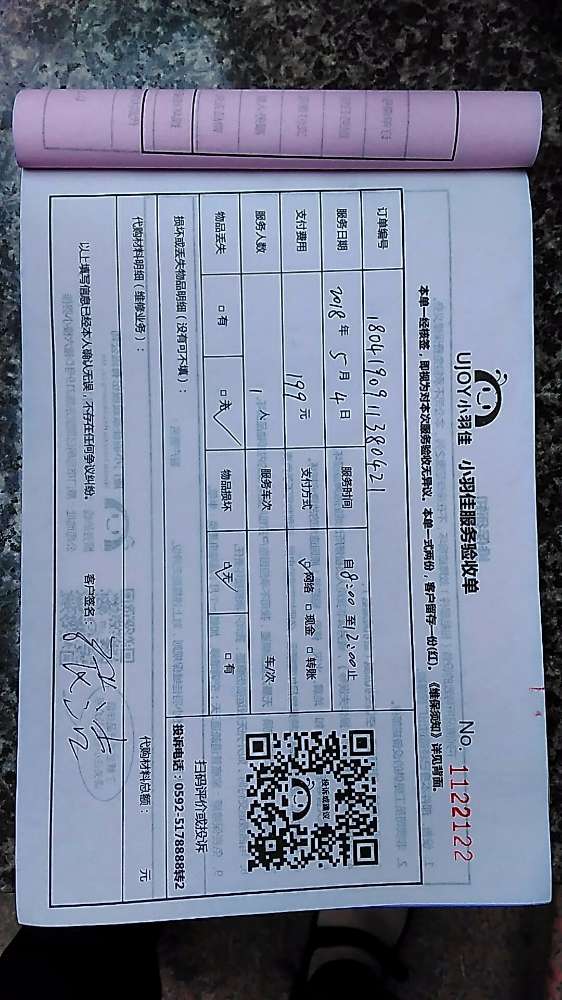 UJOY小羽佳 小羽佳服务验收单
No. 1122122
本单一经核签，即视为对本次服务验收无异议。本单一式两份，客户留存一份(红)。《维保须知》详见背面。
订单编号 1804190911380421
服务日期 2018年5月4日 服务时间 自8:00至12:00止
支付费用 199元 支付方式 ☑网络 □现金 □转账
服务人数 1人 服务车次 车/次
物品丢失 □有 □无✓ 物品损坏 □无✓ □有
投诉或建议
扫码评价或投诉
投诉电话：0592-5178888转2
损坏或丢失物品明细（没有可不填）：
代购材料明细（维修业务）： 代购材料总额： 元
以上填写信息已经本人确认无误，不存在任何争议纠纷。 客户签名：